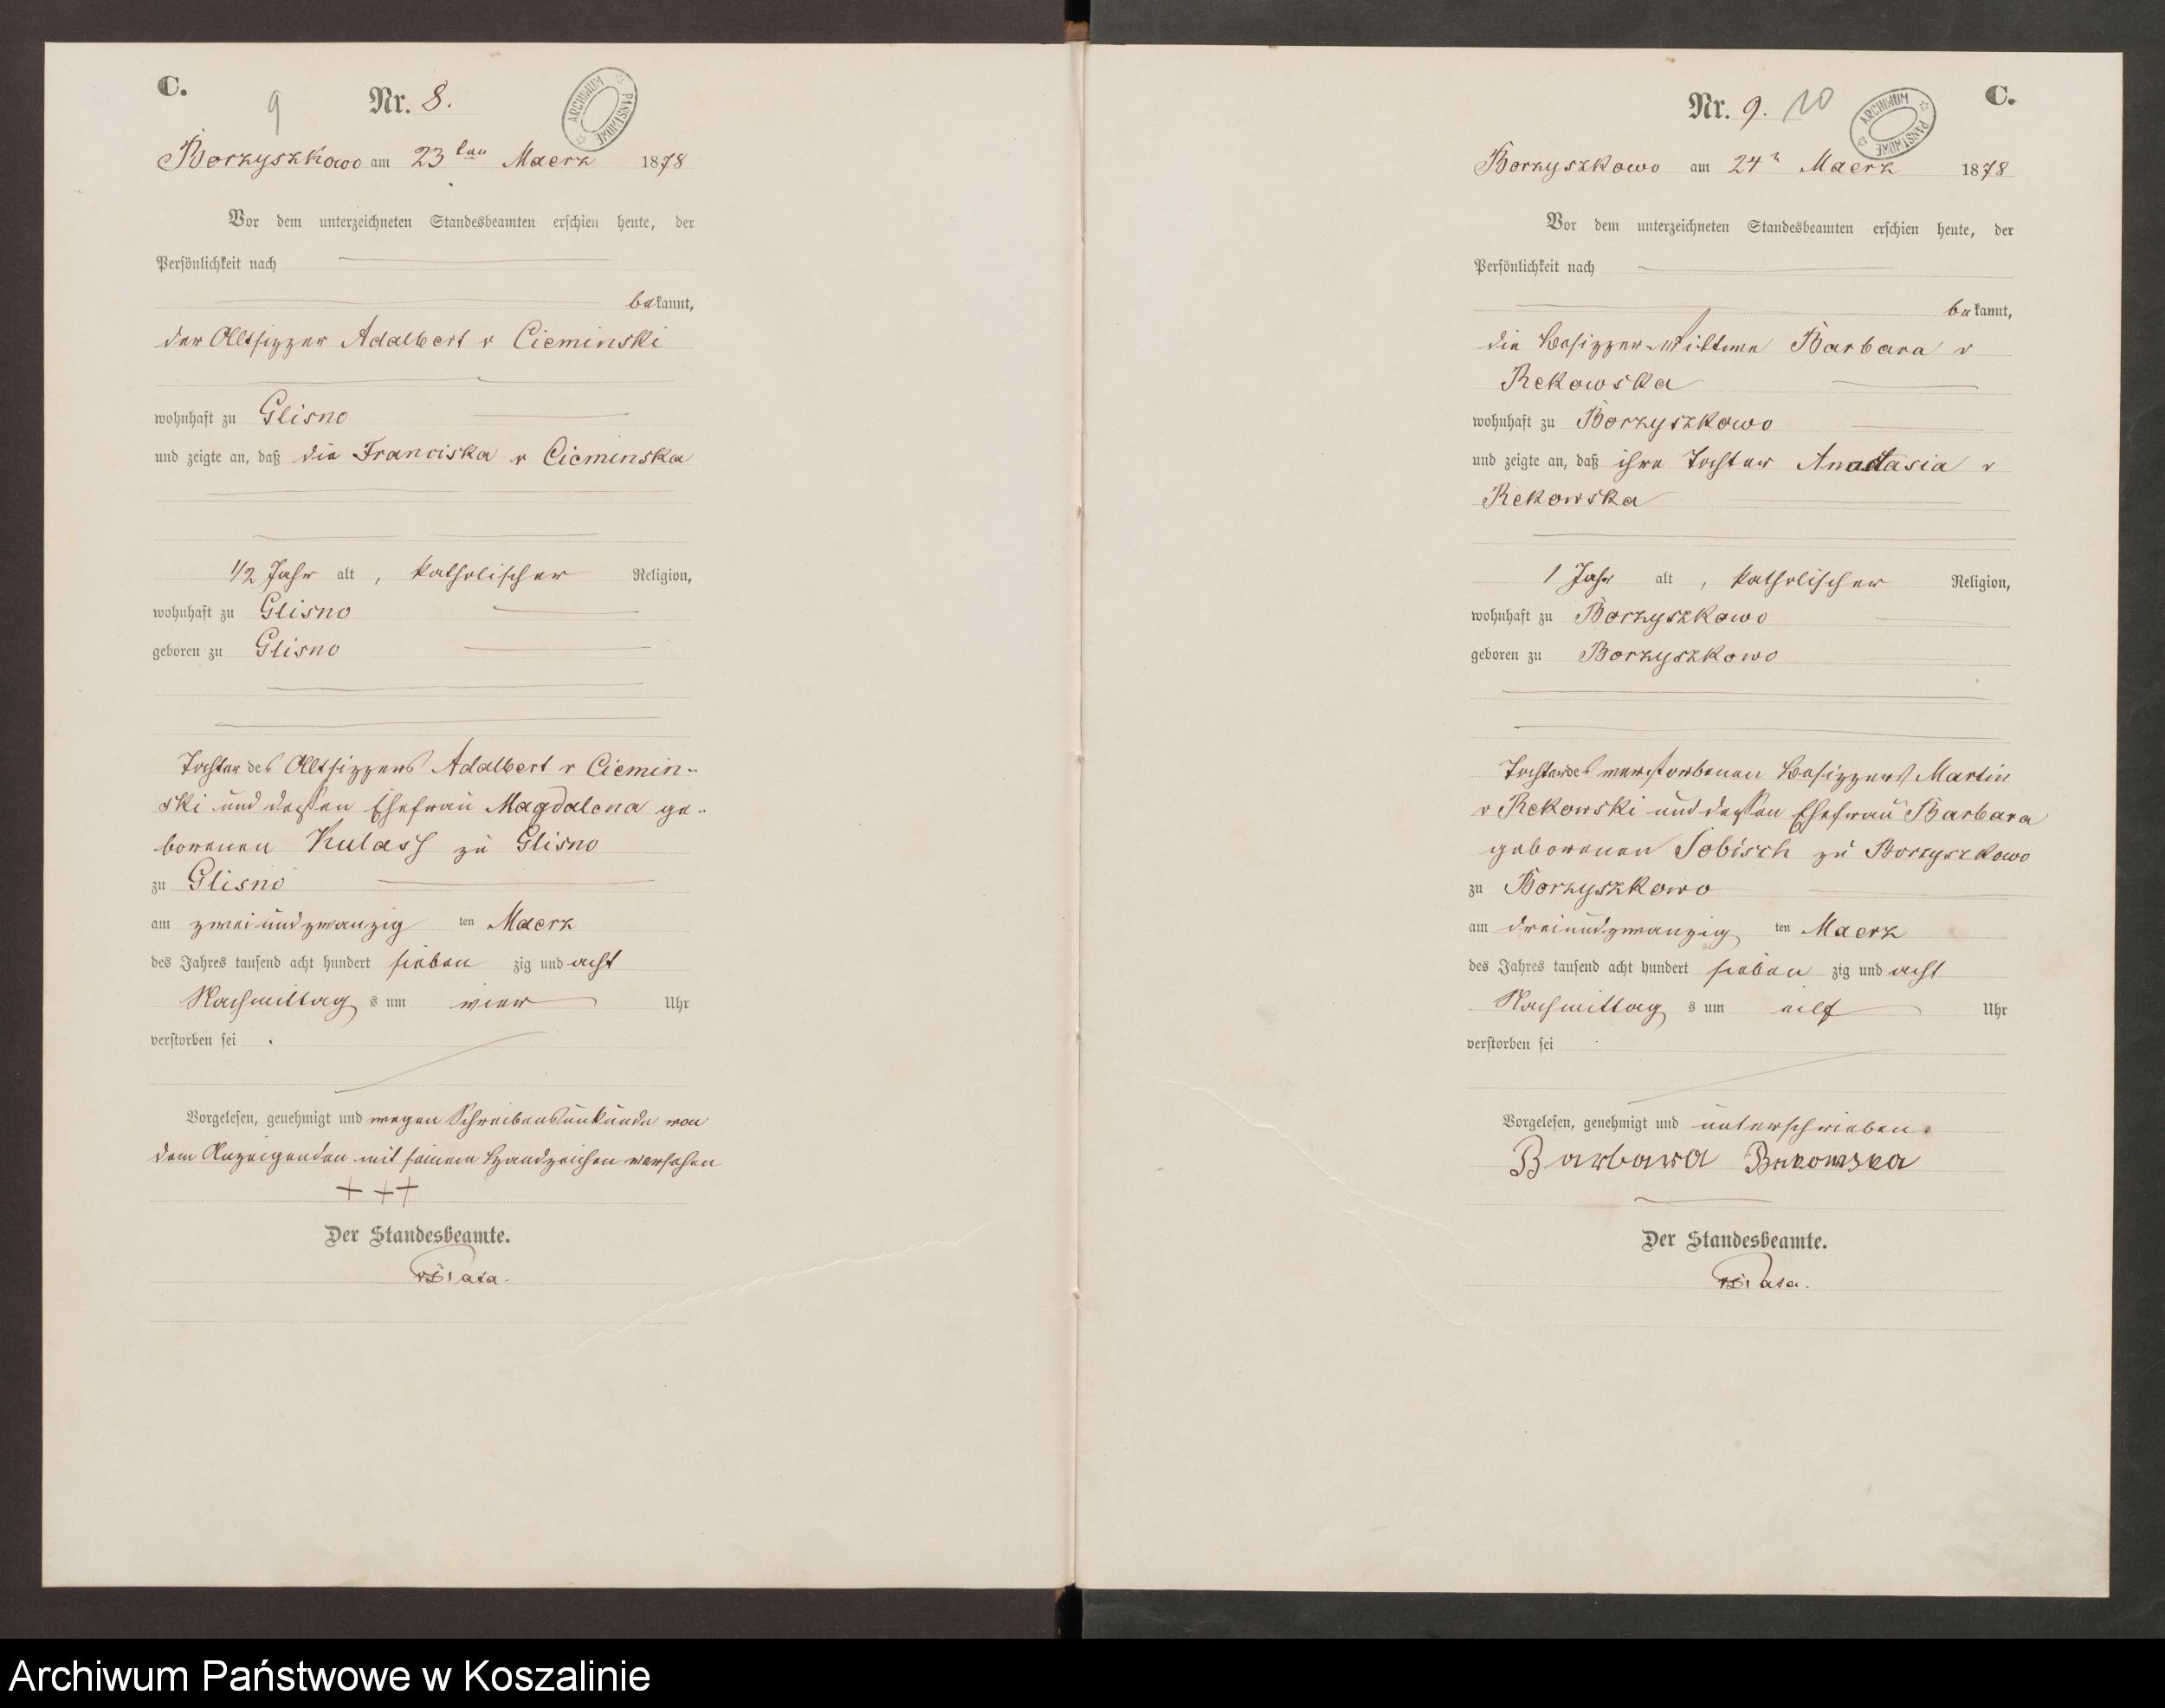 C.
9
Nr. 8.
ARCHIWUM PAŃSTWOWE
Borzyszkowo am 23ten Maerz 1878
Vor dem unterzeichneten Standesbeamten erschien heute, der
Persönlichkeit nach
bekannt,
der Altsitzer Adalbert v Cieminski
wohnhaft zu Glisno
und zeigte an, daß die Franciska v Cieminska
1/2 Jahr alt, katholischer Religion,
wohnhaft zu Glisno
geboren zu Glisno
Tochter des Altsitzers Adalbert v Ciemin-
ski und dessen Ehefrau Magdalena ge-
borenen Kulass zu Glisno
zu Glisno
am zweiundzwanzig ten Maerz
des Jahres tausend acht hundert sieben zig und acht
Nachmittag s um vier Uhr
verstorben sei.
Vorgelesen, genehmigt und wegen Schreibensunkunde von
dem Anzeigenden mit seinem Handzeichen versehen
+++
Der Standesbeamte.
C.
Nr. 9. 10
ARCHIWUM PAŃSTWOWE
Borzyszkowo am 24n Maerz 1878
Vor dem unterzeichneten Standesbeamten erschien heute, der
Persönlichkeit nach
bekannt,
die Besitzer-Wittwe Barbara v
Rekowska
wohnhaft zu Borzyszkowo
und zeigte an, daß ihre Tochter Anastasia v
Rekowska
1 Jahr alt, katholischer Religion,
wohnhaft zu Borzyszkowo
geboren zu Borzyszkowo
Tochter des verstorbenen Besitzers Martin
v Rekowski und dessen Ehefrau Barbara
geborenen Tobisch zu Borzyszkowo
zu Borzyszkowo
am dreiundzwanzig ten Maerz
des Jahres tausend acht hundert sieben zig und acht
Nachmittag s um eilf Uhr
verstorben sei
Vorgelesen, genehmigt und unterschrieben.
Barbara Rekowska
Der Standesbeamte.
Archiwum Państwowe w Koszalinie